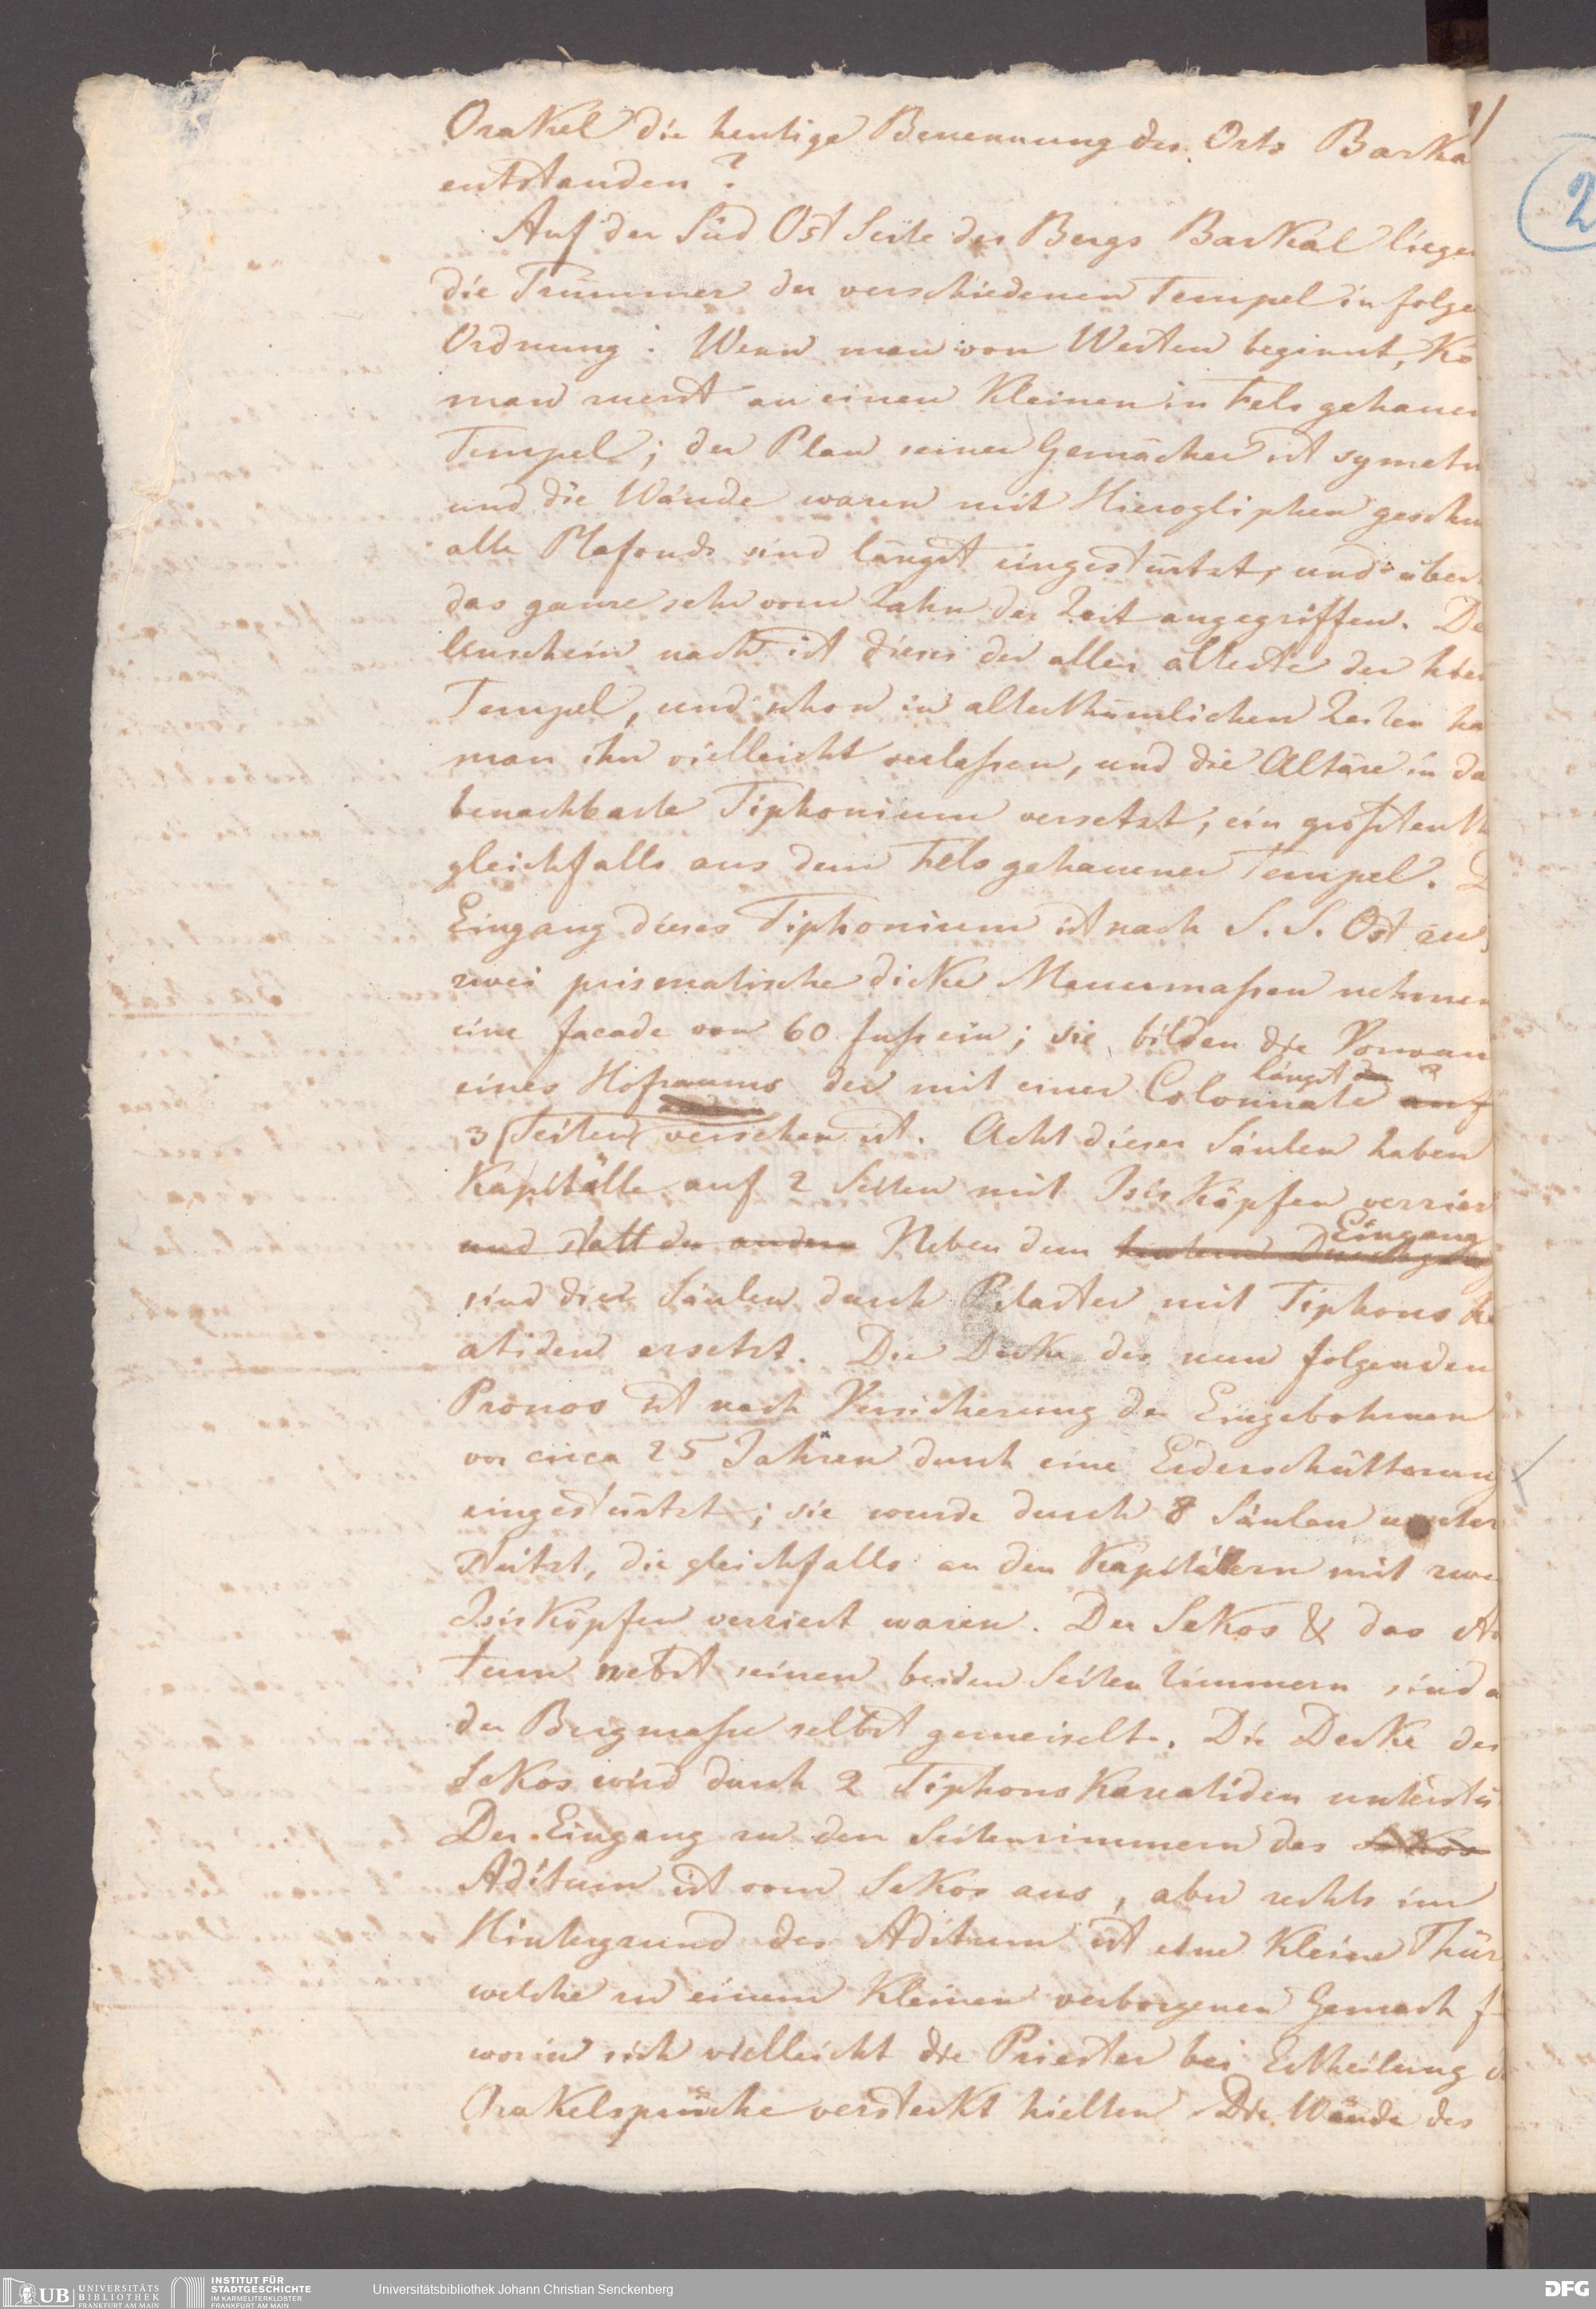 Orakel die heutige Benennung des Orts Barka
entstanden?
Auf der Süd Ost Seite des Bergs Barkal liegen
die Trümmer der verschiedenen Tempel in folge
Ordnung: Wenn man von Westen beginnt, Kö
man zuerst an einen Kleinen in Fels gehauen
Tempel; der Plan seiner Gemächer ist symetr
und die Wände waren mit Hierogliphen geschm
alle Plafonds sind längst eingestürtzt, und über
das ganze sehr vom Zahn der Zeit angegriffen. De
Anschein nach ist dieses der aller älteste der hier
Tempel, und schon in alterthümlichen Zeiten ha
man ihn vielleicht verlaßen, und die Altäre in da
benachbarte Tiphonium versetzt, ein größtenth
gleichfalls aus dem Fels gehauener Tempel. D
Eingang dieses Tiphonium ist nach S. S. Ost zu,
zwei prismatische dicke Mauermaßen nehmen
eine facade von 60 fuß ein; sie bilden die Vorwan
längst
eines Hofraums der mit einer Colonnate auf
3 Seiten versehen ist. Acht dieser Säulen haben
Kapitälle auf 2 Seiten mit Isis Köpfen verzier
Eingang
und statt der andern Neben dem
sind diese Säulen durch Pilaster mit Tiphons Ka
atiden ersetzt. Die Decke des nun folgenden
Pronos ist nach Versicherung der Eingebohrnen
vor circa 25 Jahren durch eine Erderschütterung
eingestürtzt; sie wurde durch 8 Säulen unter
stützt, die gleichfalls an den Kapitälern mit zwei
Isis Köpfen verziert waren. Der Sekos & das Ad
tum nebst seinen beiden Seiten Zimmern sind a
der Bergmaße selbst gemeiselt. Die Decke des
Sekos wird durch 2 Tiphons Karatiden unterstü
Der Eingang zu den Seitenzimmern des Sekos
Aditum ist vom Sekos aus, aber rechts im
Hintergrund des Aditum ist eine Kleine Thür
welche zu einem Kleinen verborgenen Gemach f
worin sich vielleicht die Priester bei Ertheilung d
Orakelsprüche versteckt hielten. Die Wände des
2
UB UNIVERSITÄTS BIBLIOTHEK FRANKFURT AM MAIN
INSTITUT FÜR STADTGESCHICHTE IM KARMELITERKLOSTER FRANKFURT AM MAIN
Universitätsbibliothek Johann Christian Senckenberg
DFG